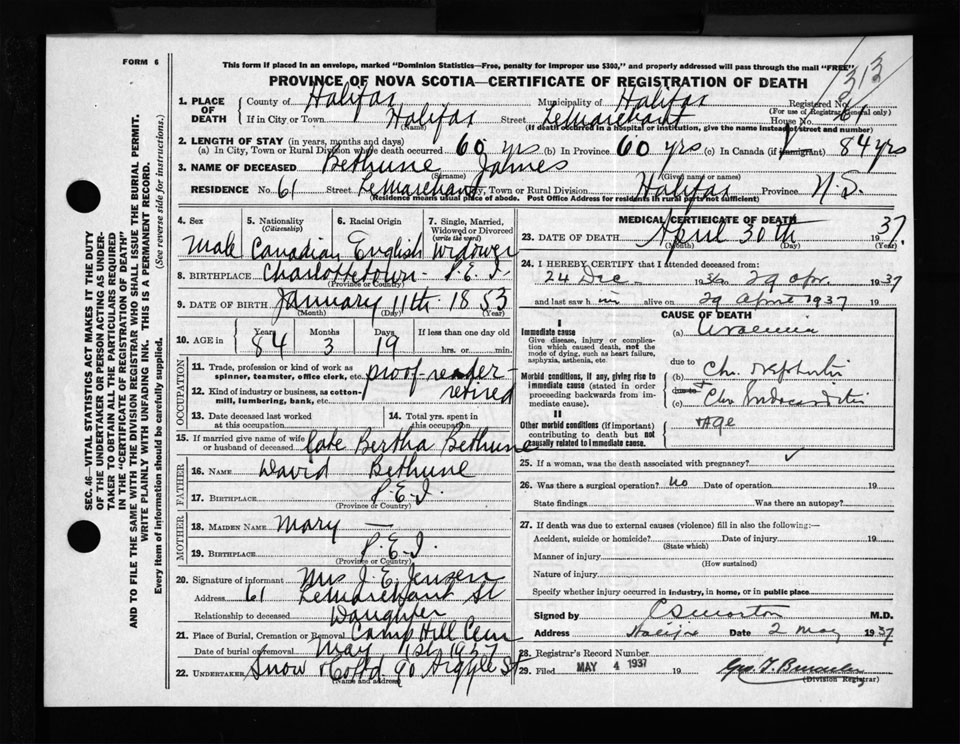 FORM 6
This form if placed in an envelope, marked "Dominion Statistics—Free, penalty for improper use $300," and properly addressed will pass through the mail "FREE"
PROVINCE OF NOVA SCOTIA—CERTIFICATE OF REGISTRATION OF DEATH
313
1. PLACE OF DEATH
County of Halifax Municipality of Halifax Registered No.
(For use of Registrar General only)
If in City or Town Halifax Street LeMarchant House No. 61
(Name) (If death occurred in a hospital or institution, give the name instead of street and number)
2. LENGTH OF STAY (in years, months and days)
(a) In City, Town or Rural Division where death occurred 60 yrs (b) In Province 60 yrs (c) In Canada (if immigrant) 84 yrs
3. NAME OF DECEASED Bethune James
(Surname) (Given name or names)
RESIDENCE No. 61 Street LeMarchant City, Town or Rural Division Halifax Province N.S.
(Residence means usual place of abode. Post Office Address for residents in rural parts not sufficient)
4. Sex Male
5. Nationality (Citizenship) Canadian
6. Racial Origin English
7. Single, Married, Widowed or Divorced (write the word) Widower
8. BIRTHPLACE Charlottetown - P.E.I.
(Province or Country)
9. DATE OF BIRTH January 11th 1853
(Month) (Day) (Year)
10. AGE in Years 84 Months 3 Days 19 If less than one day old
hrs. or min.
OCCUPATION
11. Trade, profession or kind of work as spinner, teamster, office clerk, etc. proof-reader-
12. Kind of industry or business, as cotton-mill, lumbering, bank, etc. retired
13. Date deceased last worked at this occupation
14. Total yrs. spent in this occupation
15. If married give name of wife or husband of deceased late Bertha Bethune
FATHER
16. NAME David Bethune
17. BIRTHPLACE P.E.I.
(Province or Country)
MOTHER
18. MAIDEN NAME Mary —
19. BIRTHPLACE P.E.I.
(Province or Country)
20. Signature of informant Mrs J. E. Jensen
Address 61 LeMarchant St
Relationship to deceased Daughter
21. Place of Burial, Cremation or Removal Camp Hill Cem
Date of burial or removal May 1st 1937
22. UNDERTAKER Snow & Co Ltd 90 Argyle St
(Name and address)
MEDICAL CERTIFICATE OF DEATH
23. DATE OF DEATH April 30th 1937.
(Month) (Day) (Year)
24. I HEREBY CERTIFY that I attended deceased from:
24 Dec 1936 to 29 Apr. 1937
and last saw him alive on 29 April 1937 19
CAUSE OF DEATH
I
Immediate cause
Give disease, injury or complication which caused death, not the mode of dying, such as heart failure, asphyxia, asthenia, etc.
(a) Uraemia
due to
Morbid conditions, if any, giving rise to immediate cause (stated in order proceeding backwards from immediate cause).
(b) Chr. Nephritis
due to
(c) Chr Endocarditis
II
Other morbid conditions (if important) contributing to death but not causally related to immediate cause.
Age
25. If a woman, was the death associated with pregnancy?
26. Was there a surgical operation? No Date of operation 19
State findings Was there an autopsy?
27. If death was due to external causes (violence) fill in also the following:—
Accident, suicide or homicide? Date of injury 19
(State which)
Manner of injury
(How sustained)
Nature of injury
Specify whether injury occurred in industry, in home, or in public place
Signed by M.D.
Address Halifax Date 2 May 1937
28. Registrar's Record Number
29. Filed MAY 4 1937 19
(Division Registrar)
SEC. 46—VITAL STATISTICS ACT MAKES IT THE DUTY
OF THE UNDERTAKER OR PERSON ACTING AS UNDER-
TAKER TO OBTAIN ALL THE PARTICULARS REQUIRED
IN THE "CERTIFICATE OF REGISTRATION OF DEATH"
AND TO FILE THE SAME WITH THE DIVISION REGISTRAR WHO SHALL ISSUE THE BURIAL PERMIT.
WRITE PLAINLY WITH UNFADING INK. THIS IS A PERMANENT RECORD.
Every item of information should be carefully supplied. (See reverse side for instructions.)